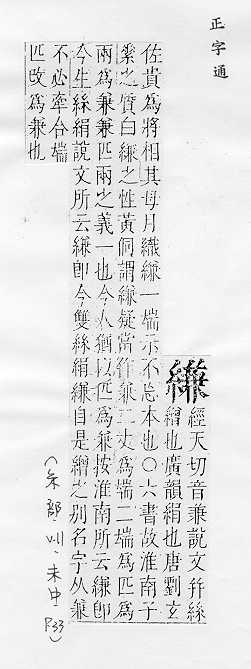 正字通
縑 經天切音兼說文幷絲
繒也廣韻絹也唐劉玄
佐貴爲將相其母月織縑一端示不忘本也○六書故淮南子
素之質白縑之性黃侗謂縑疑當作兼二丈爲端二端爲匹爲
兩爲兼兼匹兩之義一也今人猶以匹爲兼按淮南所云縑卽
今生絲絹說文所云縑卽今雙絲絹縑自是繒之別名字从兼
不必牽合端
匹改爲兼也
(糸部川、未中 P.33)